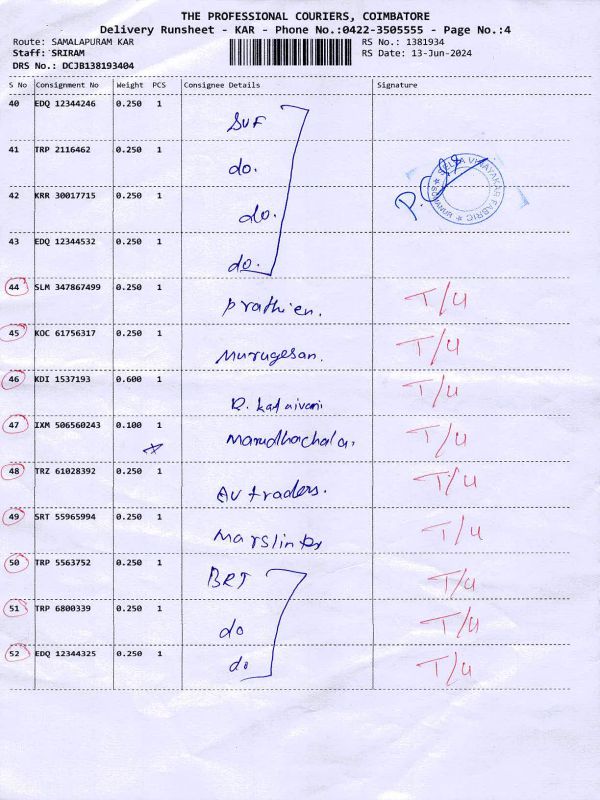 THE PROFESSIONAL COURIERS, COIMBATORE
Delivery Runsheet - KAR - Phone No.:0422-3505555 - Page No.:4
Route: SAMALAPURAM KAR RS No.: 1381934
Staff: SRIRAM RS Date: 13-Jun-2024
DRS No.: DCJB138193404
S No Consignment No Weight PCS Consignee Details Signature
40 EDQ 12344246 0.250 1 SVF
41 TRP 2116462 0.250 1 do.
42 KRR 30017715 0.250 1 do.
43 EDQ 12344532 0.250 1 do.
44 SLM 347867499 0.250 1 Prathien. T/U
45 KOC 61756317 0.250 1 Murugesan. T/U
46 KDI 1537193 0.600 1 R. Kalaivani T/U
47 IXM 506560243 0.100 1 Marudhachala. T/U
48 TRZ 61028392 0.250 1 AV traders. T/U
49 SRT 55965994 0.250 1 T/U
50 TRP 5563752 0.250 1 BRT T/U
51 TRP 6800339 0.250 1 do T/U
52 EDQ 12344325 0.250 1 do T/U